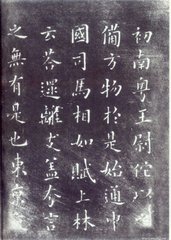 初南粤王尉佗以之
備方物於是始通中
國司馬相如賦上林
云荅遝離支蓋夸言
之無有是也東京